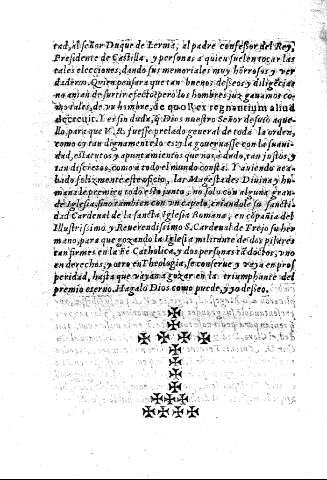 tad, al señor Duque de Lerma, al padre confessor del Rey,
Presidente de Castilla, y personas a quien suelen tocar las
tales elecciones, dando sus memoriales muy hõrosos y ver
daderos. Quien pensara que tan buenos desseos y diligẽcias
no auian de surtir efecto? pero los hombres juzgauamos co
mo tales, de vn hombre, de quo Rex regnantium aliud
decreuit. Y es sin duda, q̃ Dios nuestro Señor desuio aque-
llo, para que V. R. fuesse prelado general de toda la orden,
como oy tan dignamente lo es: y la gouernasse con la suaui-
dad, estatutos y apuntamientos que nos à dado, tan justos, y
tan discretos, como à todo el mundo consta. Y auiendo aca-
bado felizmente este oficio, las Magestades Diuina y hu-
mana le premien todo esto junto, no solo con alguna gran-
de Iglesia, sino tambien con vn capelo, criandole su Sancti-
dad Cardenal de la sancta Iglesia Romana, en cõpañia del
Illustrissimo y Reuerendissimo S. Cardenal de Trejo su her
mano, para que gozando la Iglesia militante de dos pilares
tan firmes en la Fè Catholica, y dos personas tã doctas, vno
en derechos, y otro en Theologia, se conserue y vaya en pros
peridad, hasta que vayan a gozar en la triumphante del
premio eterno. Hagalo Dios como puede, y yo desseo.